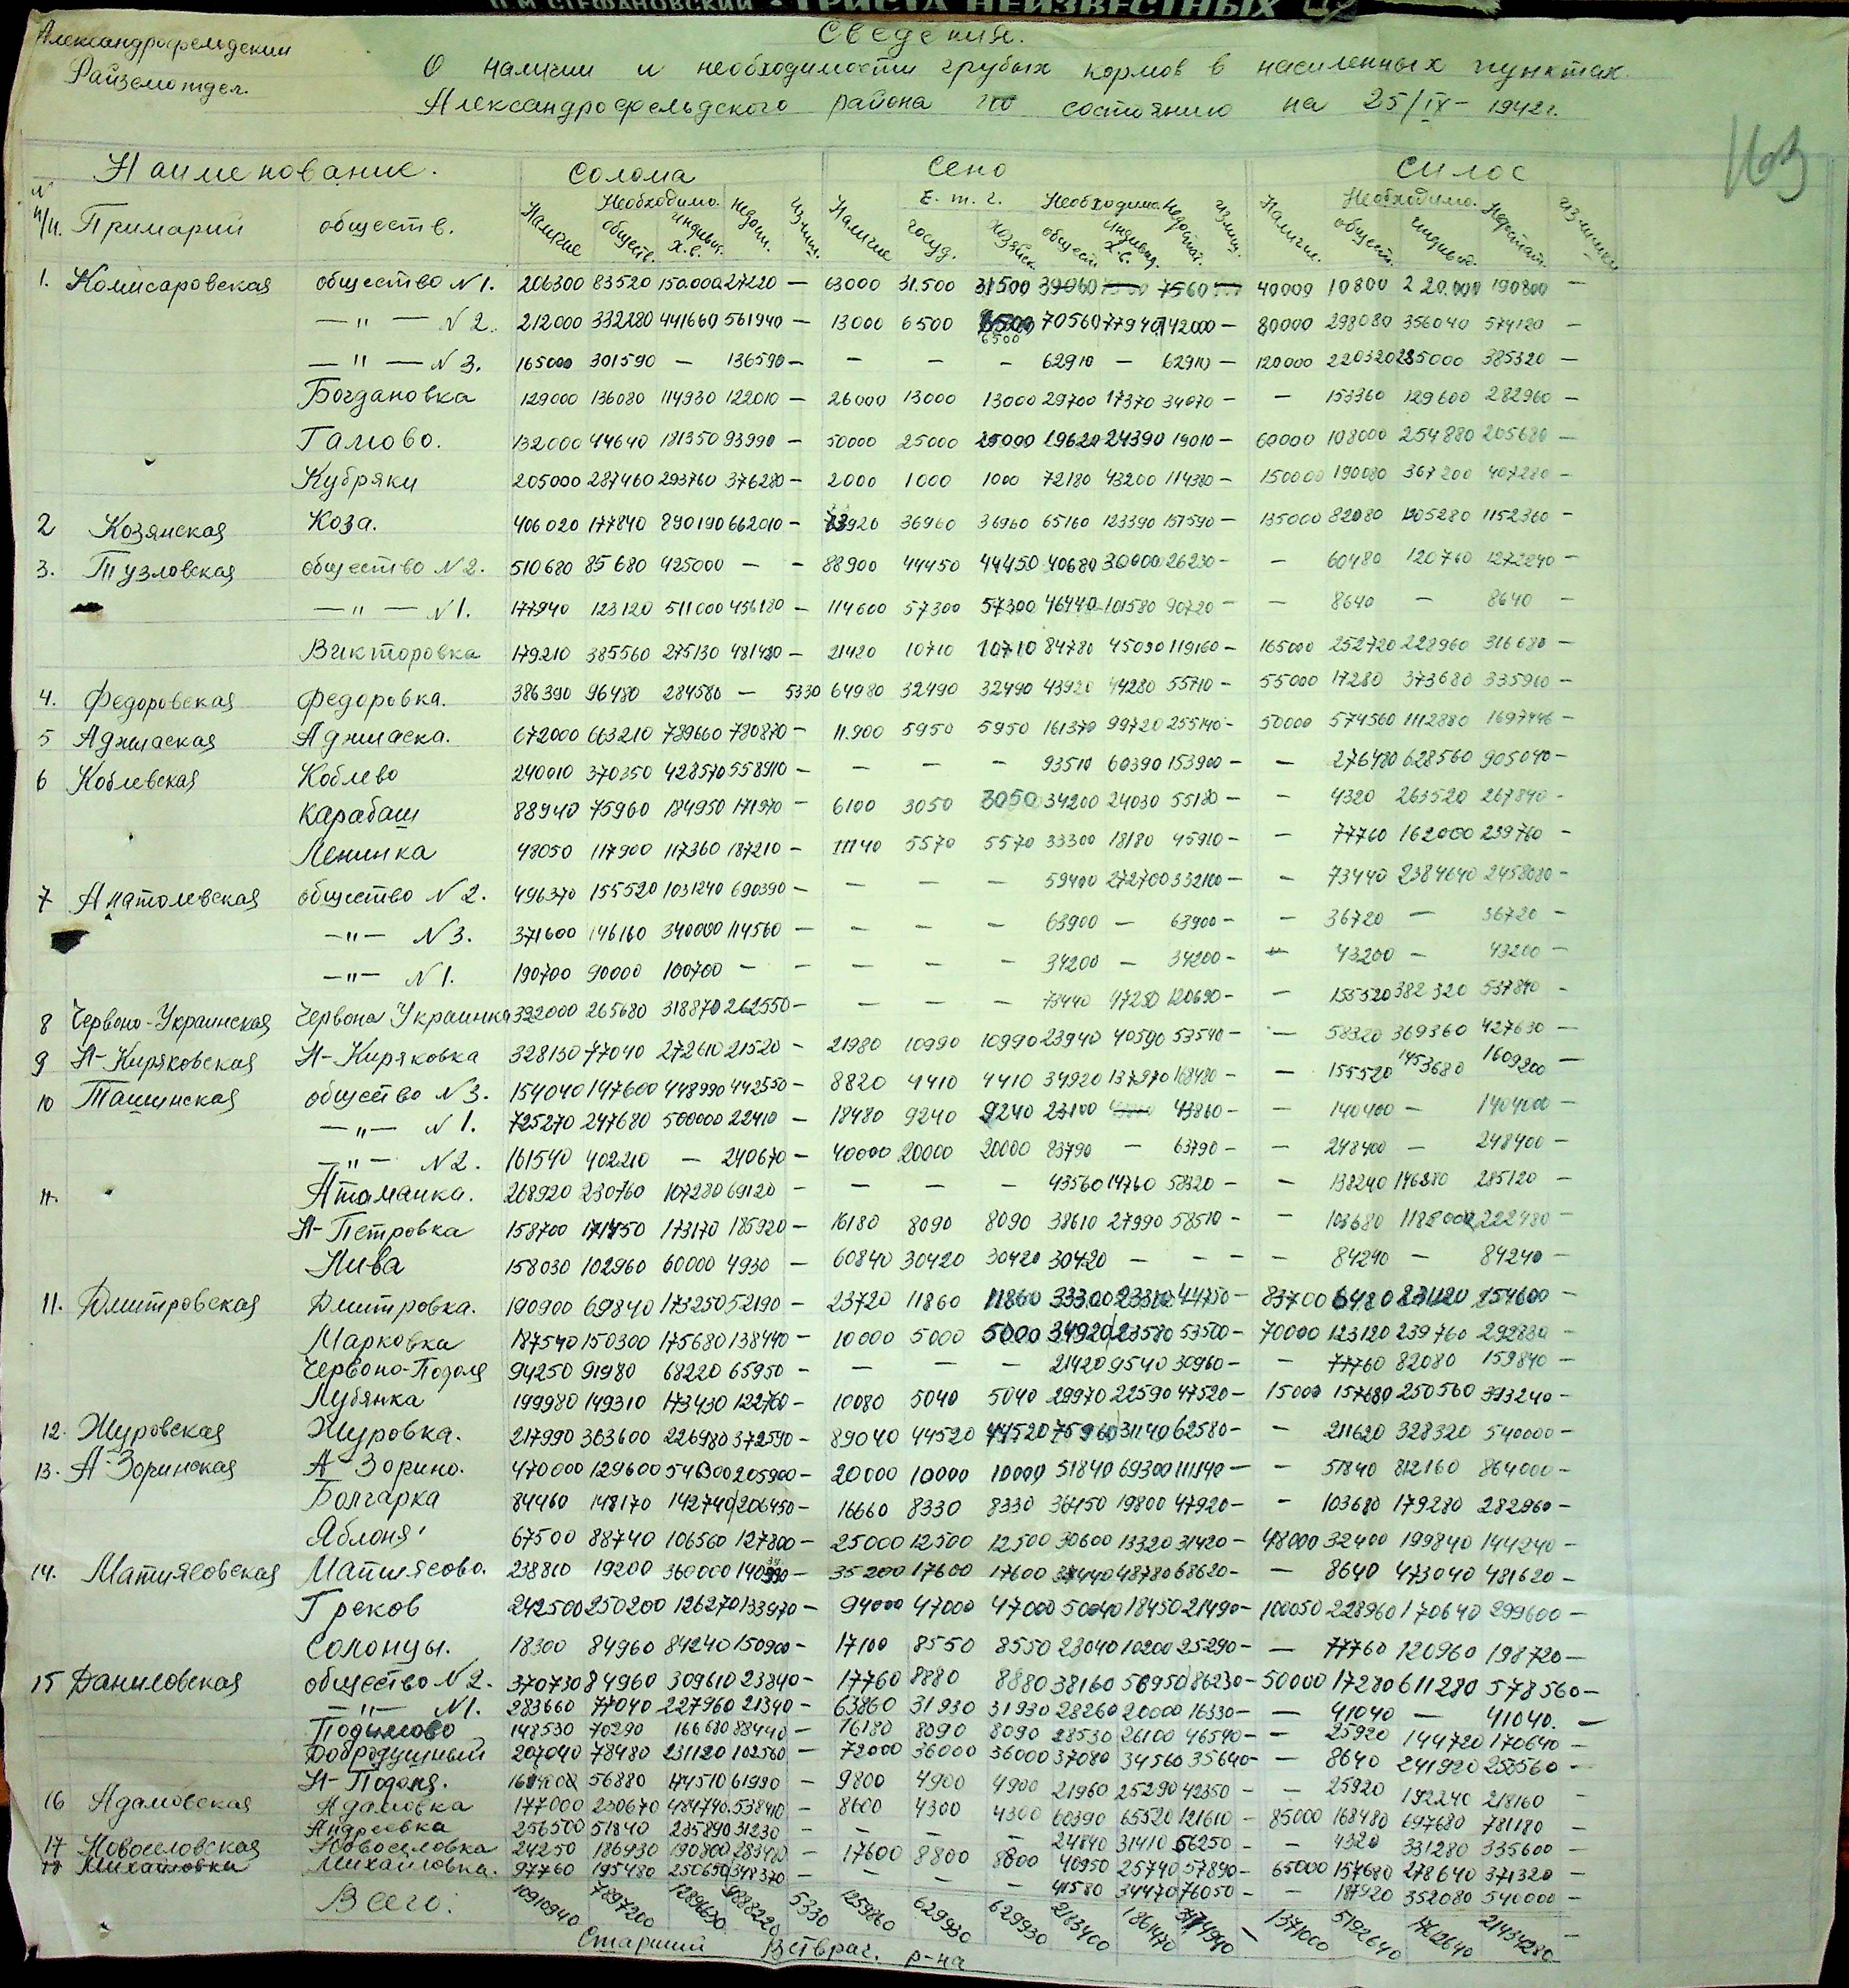 П. И. СТЕФАНОВСКИЙ • ТРИСТА НЕИЗВЕСТНЫХ
Александрофельдский
Райземотдел.
Сведения.
О наличии и необходимости грубых кормов в населенных пунктах
Александрофельдского района по состоянию на 25/IX- 1942г.
163
Наименование. Солома Сено Силос
N п/п. Примарий обществ. Наличие Необходимо. обществ. индивид. х.в. недост. излиш. Наличие Е. т. ч. госуд. хозяйск. Необходимо обществ индивид. х.в. недостат. излиш. Наличие. Необходимо. обществ. индивид. Недостат. излишки
1. Комисаровская общество N1. 206300 83520 150.000 27220 — 63000 31.500 31500 39060 7560 — 40000 10800 220.000 190800 —
—"— N2. 212000 332280 441660 561940 — 13000 6500 6500 70560 77940 142000 — 80000 298080 356040 574120 —
—"— N3. 165000 301590 — 136590 — — — — 62910 — 62910 — 120000 220320 285000 385320 —
Богдановка 129000 136080 114930 122010 — 26000 13000 13000 29700 17370 34070 — — 153360 129600 282960 —
Гамово. 132000 44640 181350 93990 — 50000 25000 25000 19620 24390 19010 — 60000 108000 254880 205680 —
Кубряки 205000 287460 293760 376280 — 2000 1000 1000 72180 43200 114380 — 150000 190080 367200 407280 —
2 Козянская Коза. 406020 177840 890190 662010 — 73920 36960 36960 65160 123390 157590 — 135000 82080 1205280 1152360 —
3. Тузловская общество N2. 510680 85680 425000 — — 88900 44450 44450 40680 30000 26230 — — 60480 120760 1272240 —
—"— N1. 177940 123120 511000 456180 — 114600 57300 57300 46440 101580 90720 — — 8640 — 8640 —
Викторовка 179210 385560 275130 481480 — 21420 10710 10710 84780 45090 119160 — 165000 252720 228960 316680 —
4. Федоровская Федоровка. 386390 96480 284580 — 5330 64980 32490 32490 43920 44280 55710 — 55000 17280 373680 335960 —
5 Аджиаская Аджиаска. 672000 663210 789660 780870 — 11.900 5950 5950 161370 99720 255140 — 50000 574560 1112880 1697446 —
6 Коблевская Коблево 240010 370350 428570 558910 — — — — 93510 60390 153900 — — 276480 628560 905040 —
Карабаш 88940 75960 184950 171970 — 6100 3050 3050 34200 24030 55180 — — 4320 263520 267840 —
Ленинка 48050 117900 117360 187210 — 11140 5570 5570 33300 18180 45910 — — 77760 162000 239760 —
7 Анатолевская общество N2. 496370 155520 1031240 690390 — — — — 59400 272700 332100 — — 73440 2384640 2458080 —
—"— N3. 371600 146160 340000 114560 — — — — 63900 — 63900 — — 36720 — 36720 —
—"— N1. 190700 90000 100700 — — — — — 34200 — 34200 — — 43200 — 43200 —
8 Червоно-Украинская Червона Украинка 322000 265680 318870 262550 — — — — 73440 47250 120690 — — 155520 382320 537840 —
9 Н-Киряковская Н-Киряковка 328130 77040 272610 21520 — 21980 10990 10990 23940 40590 53540 — — 58320 369360 427630 —
10 Ташинская общество N3. 154040 147600 448990 442550 — 8820 4410 4410 34920 137970 168480 — — 155520 1453680 1609200 —
—"— N1. 725270 247680 500000 22410 — 18480 9240 9240 23100 43860 — — 140400 — 1404000 —
—"— N2. 161540 402210 — 240670 — 40000 20000 20000 83790 — 63790 — — 248400 — 248400 —
11. Атаманка. 268920 230760 107280 69120 — — — — 43560 14760 58320 — — 138240 146880 285120 —
Н-Петровка 158700 171450 173170 185920 — 16180 8090 8090 38610 27990 58510 — — 103680 118800 222480 —
Нива 158030 102960 60000 4930 — 60840 30420 30420 30420 — — — — 84240 — 84240 —
11. Дмитровская Дмитровка. 190900 69840 173250 52190 — 23720 11860 11860 33300 23310 44750 — 83700 6480 231120 154600 —
Марковка 187540 150300 175680 138440 — 10000 5000 5000 34920 23580 53500 — 70000 123120 239760 292880 —
Червоно-Подоля 94250 91980 68220 65950 — — — — 21420 9540 30960 — — 77760 82080 159840 —
Лубянка 199980 149310 173430 122760 — 10080 5040 5040 29970 22590 47520 — 15000 157680 250560 393240 —
12. Журовская Журовка. 217990 363600 226980 372590 — 89040 44520 44520 75960 31140 62580 — — 211620 328320 540000 —
13. А-Зоринская А-Зорино. 470000 129600 546300 205900 — 20000 10000 10000 51840 69300 111140 — — 51840 812160 864000 —
Болгарка 84460 148170 142740 206450 — 16660 8330 8330 36450 19800 47920 — — 103680 179280 282960 —
Яблоня 67500 88740 106560 127800 — 25000 12500 12500 30600 13320 31420 — 48000 32400 199840 144240 —
14. Матиясовская Матиясово. 238810 19200 360000 140390 — 35200 17600 17600 37440 48780 68620 — — 8640 473040 481620 —
Греков 242500 250200 126270 133970 — 94000 47000 47000 50040 18450 21490 — 100050 228960 170640 299600 —
Солонцы. 18300 84960 84240 150900 — 17100 8550 8550 23040 10200 25290 — — 77760 120960 198720 —
15 Даниловская общество N2. 370730 84960 309610 23840 — 17760 8880 8880 38160 56950 86230 — 50000 17280 611280 578560 —
—"— N1. 283660 77040 227960 21340 — 63860 31930 31930 28260 20000 16330 — — 41040 — 41040. —
Подимово 148530 70290 166680 88440 — 16180 8090 8090 28530 26100 46540 — — 25920 144720 170640 —
Добродушный 207040 78480 231120 102560 — 72000 36000 36000 37080 34560 35640 — — 8640 241920 250560 —
Н-Подоля. 56880 174510 61990 — 9800 4900 4900 21960 25290 42350 — — 25920 192240 218160 —
16 Адамовская Адамовка 177000 230670 484740 538410 — 8600 4300 4300 60390 65520 121610 — 85000 168480 697680 781180 —
Андреевка 256500 51840 235890 31230 — — — — 24840 31410 56250 — — 4320 331280 335600 —
17 Новоселовская Новоселовка 24250 186930 190800 283480 — 17600 8800 8800 40950 25740 57890 — 65000 157680 278640 371320 —
18 Михайловка Михайловка. 97760 195480 250650 348370 — — — — 41580 34470 76050 — — 187920 352080 540000 —
Всего: 10910940 7897200 5330 1259860 629930 629930 2183400 1861470 — 1371000 5192640 17612640 21434280 —
Старший Ветврач. р-на